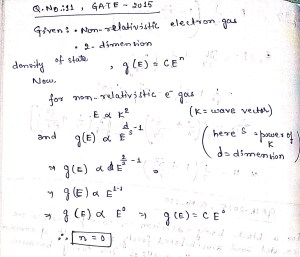 Q.No:11, GATE - 2015
Given: • Non-relativistic electron gas
• 2-dimension
density of state, g(E) = CEⁿ
Now,
for non-relativistic e⁻ gas
E ∝ K² (K = wave vector)
and g(E) ∝ E^(d/s - 1) (here s = power of K
d = dimention)
⇒ g(E) ∝ dE^(2/2 - 1)
⇒ g(E) ∝ E^(1-1)
⇒ g(E) ∝ E⁰ ⇒ g(E) = CE⁰
∴ n = 0